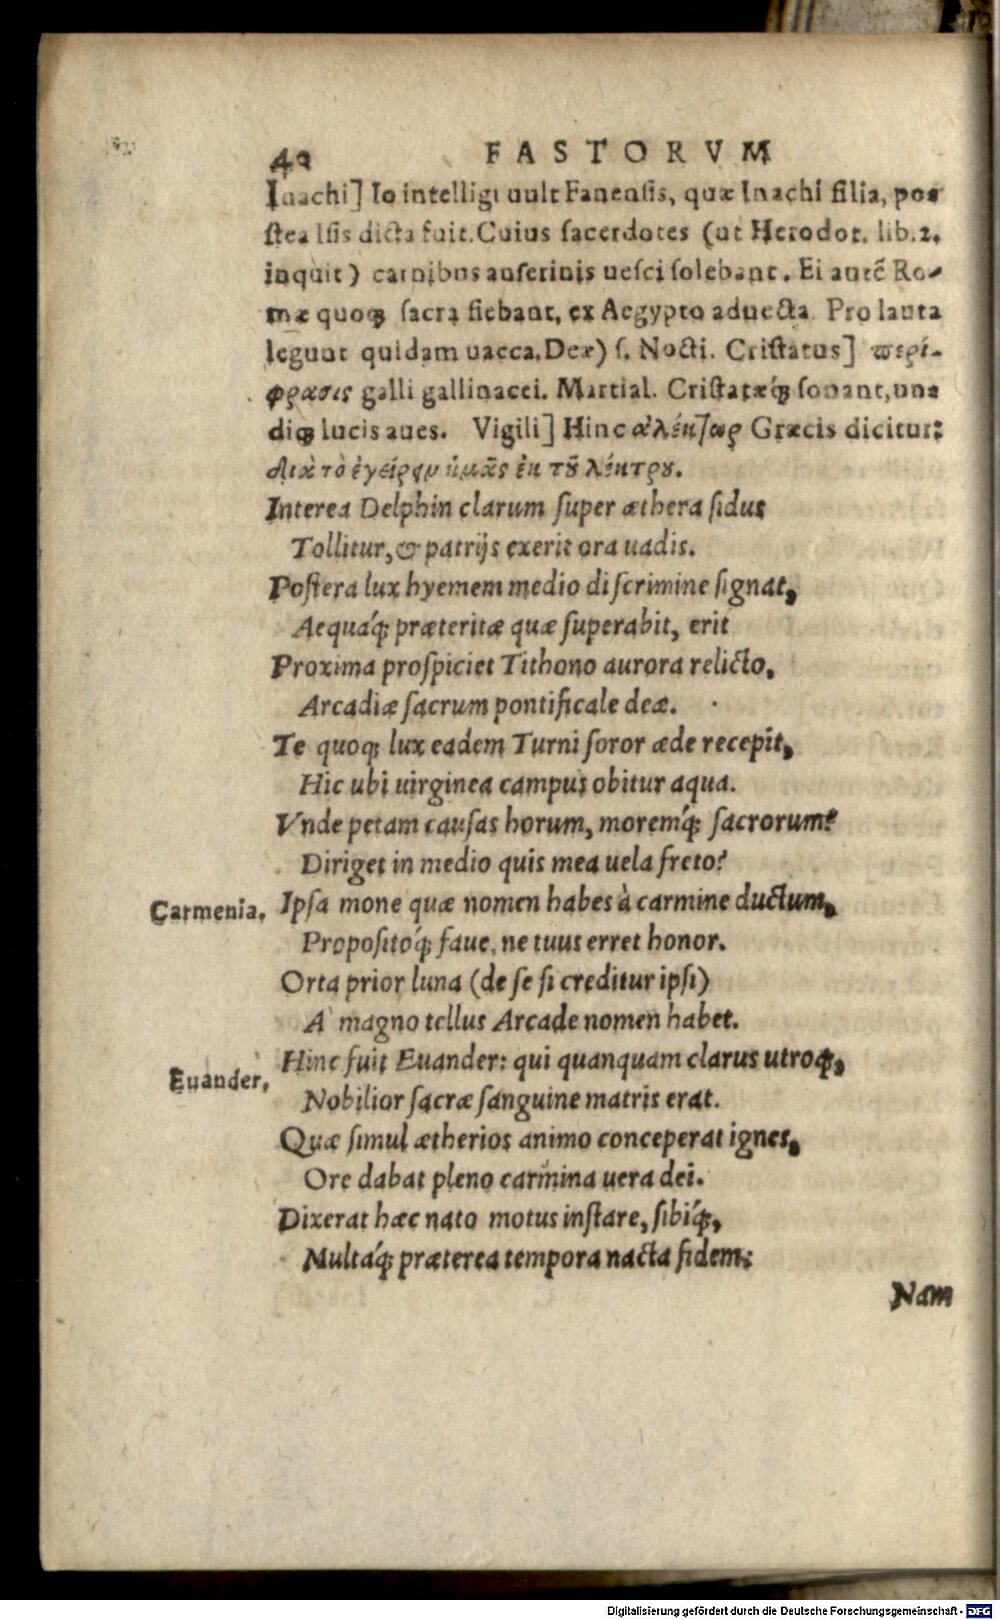 40 FASTORVM
Inachi] Io intelligi uult Fanensis, quæ Inachi filia, po-
stea Isis dicta fuit. Cuius sacerdotes (ut Herodot. lib.2.
inquit) carnibus anserinis uesci solebant. Ei autē Ro-
mæ quoq; sacra fiebant, ex Aegypto aduecta. Pro lauta
legunt quidam uacca. Deæ) s. Nocti. Cristatus] περί-
φρασις galli gallinacei. Martial. Cristatæq́; sonant, un-
diq; lucis aues. Vigili] Hinc ἀλέκτωρ Græcis dicitur:
διὰ τὸ ἐγείρειν ἡμᾶς ἐκ τοῦ λέκτρου.
Interea Delphin clarum super æthera sidus
Tollitur, & patrijs exerit ora uadis.
Postera lux hyemem medio discrimine signat,
Aequáq; præteritæ quæ superabit, erit
Proxima prospiciet Tithono aurora relicto,
Arcadiæ sacrum pontificale deæ.
Te quoq; lux eadem Turni soror æde recepit,
Hic ubi uirginea campus obitur aqua.
Vnde petam causas horum, moremq́; sacrorum?
Diriget in medio quis mea uela freto?
Carmenta. Ipsa mone quæ nomen habes à carmine ductum,
Propositóq; faue, ne tuus erret honor.
Orta prior luna (de se si creditur ipsi)
A magno tellus Arcade nomen habet.
Euander. Hinc fuit Euander: qui quanquam clarus utroq;,
Nobilior sacræ sanguine matris erat.
Quæ simul ætherios animo conceperat ignes,
Ore dabat pleno carmina uera dei.
Dixerat hæc nato motus instare, sibiq́;,
Multáq; præterea tempora nacta fidem:
Nam
Digitalisierung gefördert durch die Deutsche Forschungsgemeinschaft - DFG